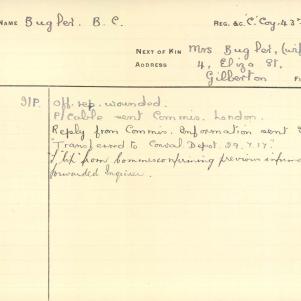 NAME Bugler. B. C. REG. &c. "C" Coy. 43
NEXT OF KIN Mrs Bugler, (wif
ADDRESS 4, Eliza St,
Gilberton
91P. Off. rep. wounded.
P/Cable sent Commis. London.
Reply from Commis. Information sent
"Transferred to Conval Depot. 29.7.17."
from Commis confirming previous inform
forwarded Enquirer.